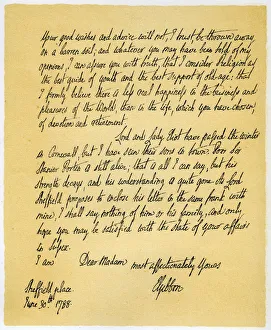 Your good wishes and advice will not, I trust, be thrown away
on a barren soil; and whatever you may have been told of my
opinions, I can assure you with truth, that I consider religion as
the best guide of youth and the best support of old age: that
I firmly believe there is less real happiness in the business and
pleasures of the World than in the life, which you have chosen,
of devotion and retirement.
Lord and Lady Eliot have passed the winter
in Cornwall, but I have seen their sons in town. Poor
Porten is still alive; that is all I can say, but his
strength decays and his understanding is quite gone. As Lord
Sheffield proposes to enclose his letter in the same frank with
mine, I shall say nothing of him or his family, and only
hope you may be satisfied with the state of your affairs
in
I am Dear Madam most affectionately Yours
Sheffield place EGibbon
June 30th 1788.